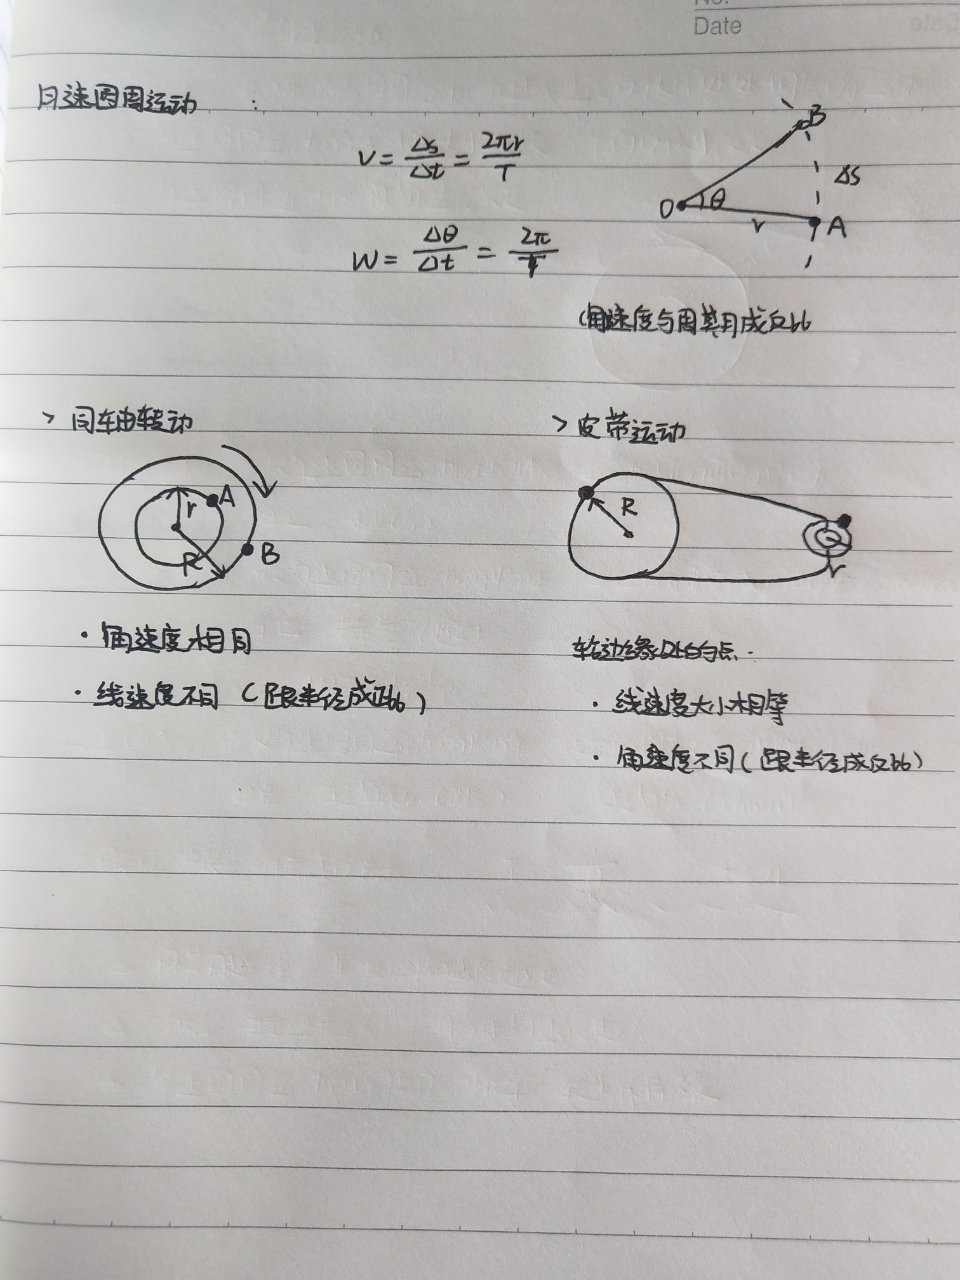 No.
Date
匀速圆周运动 :
V = Δs/Δt = 2πr/T
W = Δθ/Δt = 2π/T
B
Δs
O θ r A
(角速度与周期成反比
> 同轴转动
> 皮带运动
A r R B
R r
· 角速度相同
· 线速度不同 (跟半径成正比)
轮边缘以上的点.
· 线速度大小相等
· 角速度不同 (跟半径成反比)